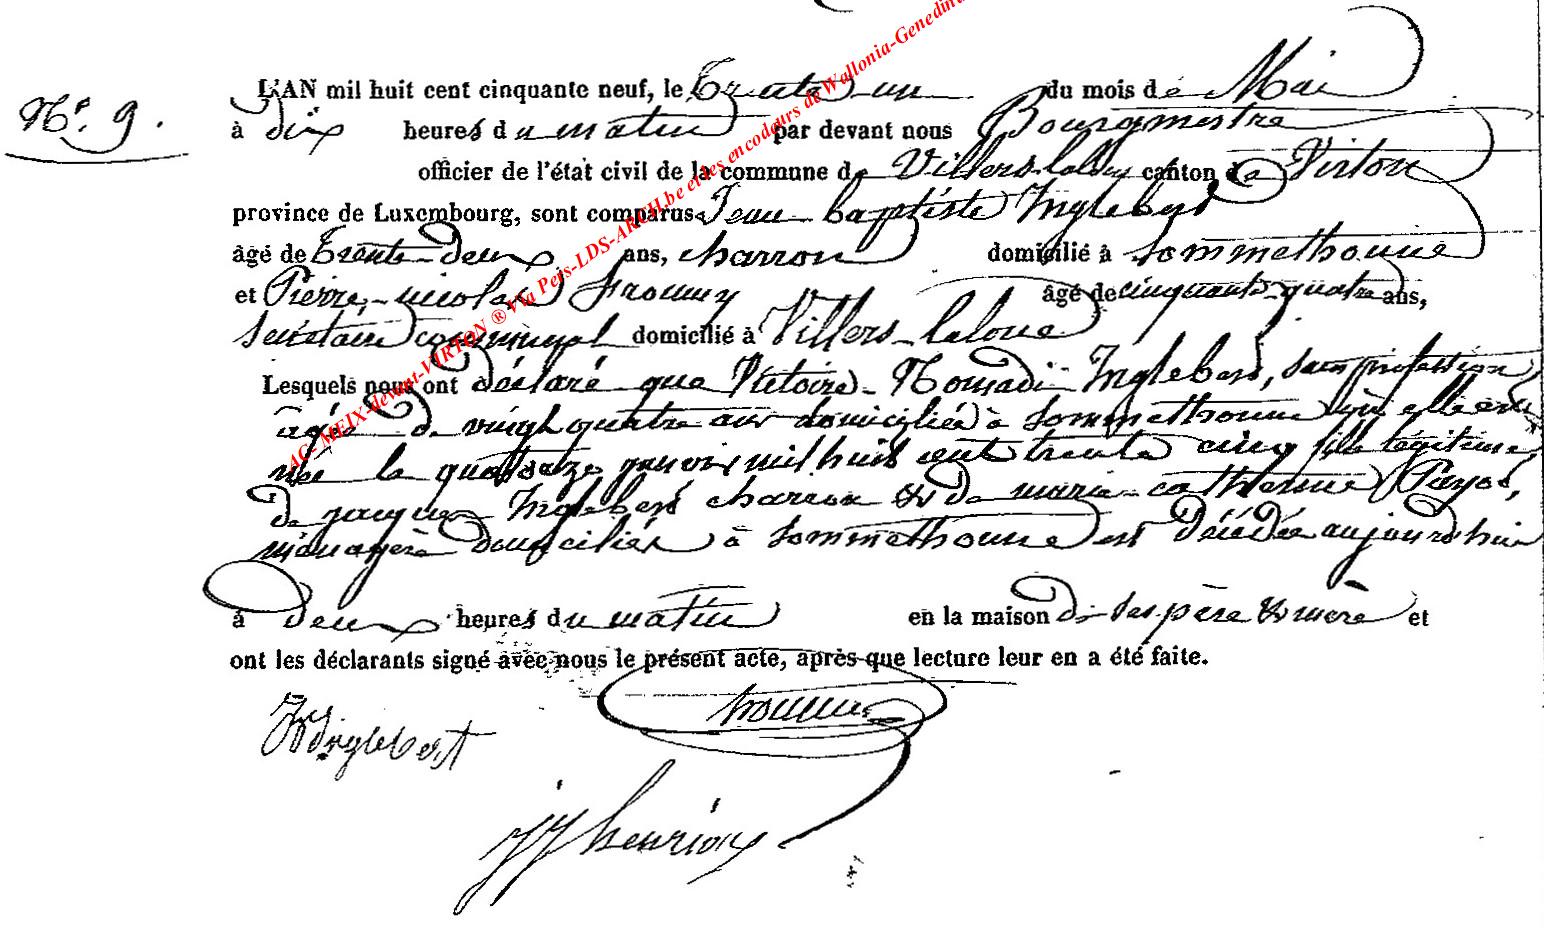 N° 9.
L'AN mil huit cent cinquante neuf, le Trente un du mois de Mai
à dix heures du matin par devant nous Bourgmestre
officier de l'état civil de la commune de Villers-laloue canton de Virton
province de Luxembourg, sont comparus Jean baptiste Inglebert
âgé de Trente-deux ans, charron domicilié à Sommethonne
et Pierre-nicolas âgé de cinquante-quatre ans,
Secrétaire communal domicilié à Villers-laloue
Lesquels nous ont déclaré que Victoire- Inglebert, sans profession
âgée de vingt quatre ans domiciliée à Sommethonne
née le janvier mil huit cent trente cinq fille légitime
de jacques Inglebert charron & de marie-catherine
ménagère domiciliés à Sommethonne est Décédée aujourd'hui
à deux heures du matin en la maison de ses père & mère et
ont les déclarants signé avec nous le présent acte, après que lecture leur en a été faite.
Inglebert
henrion
AC- MEIX-devant-VIRTON ® Via Pers-LDS-ARCH.be et les encodeurs de Wallonia-Genedinfo